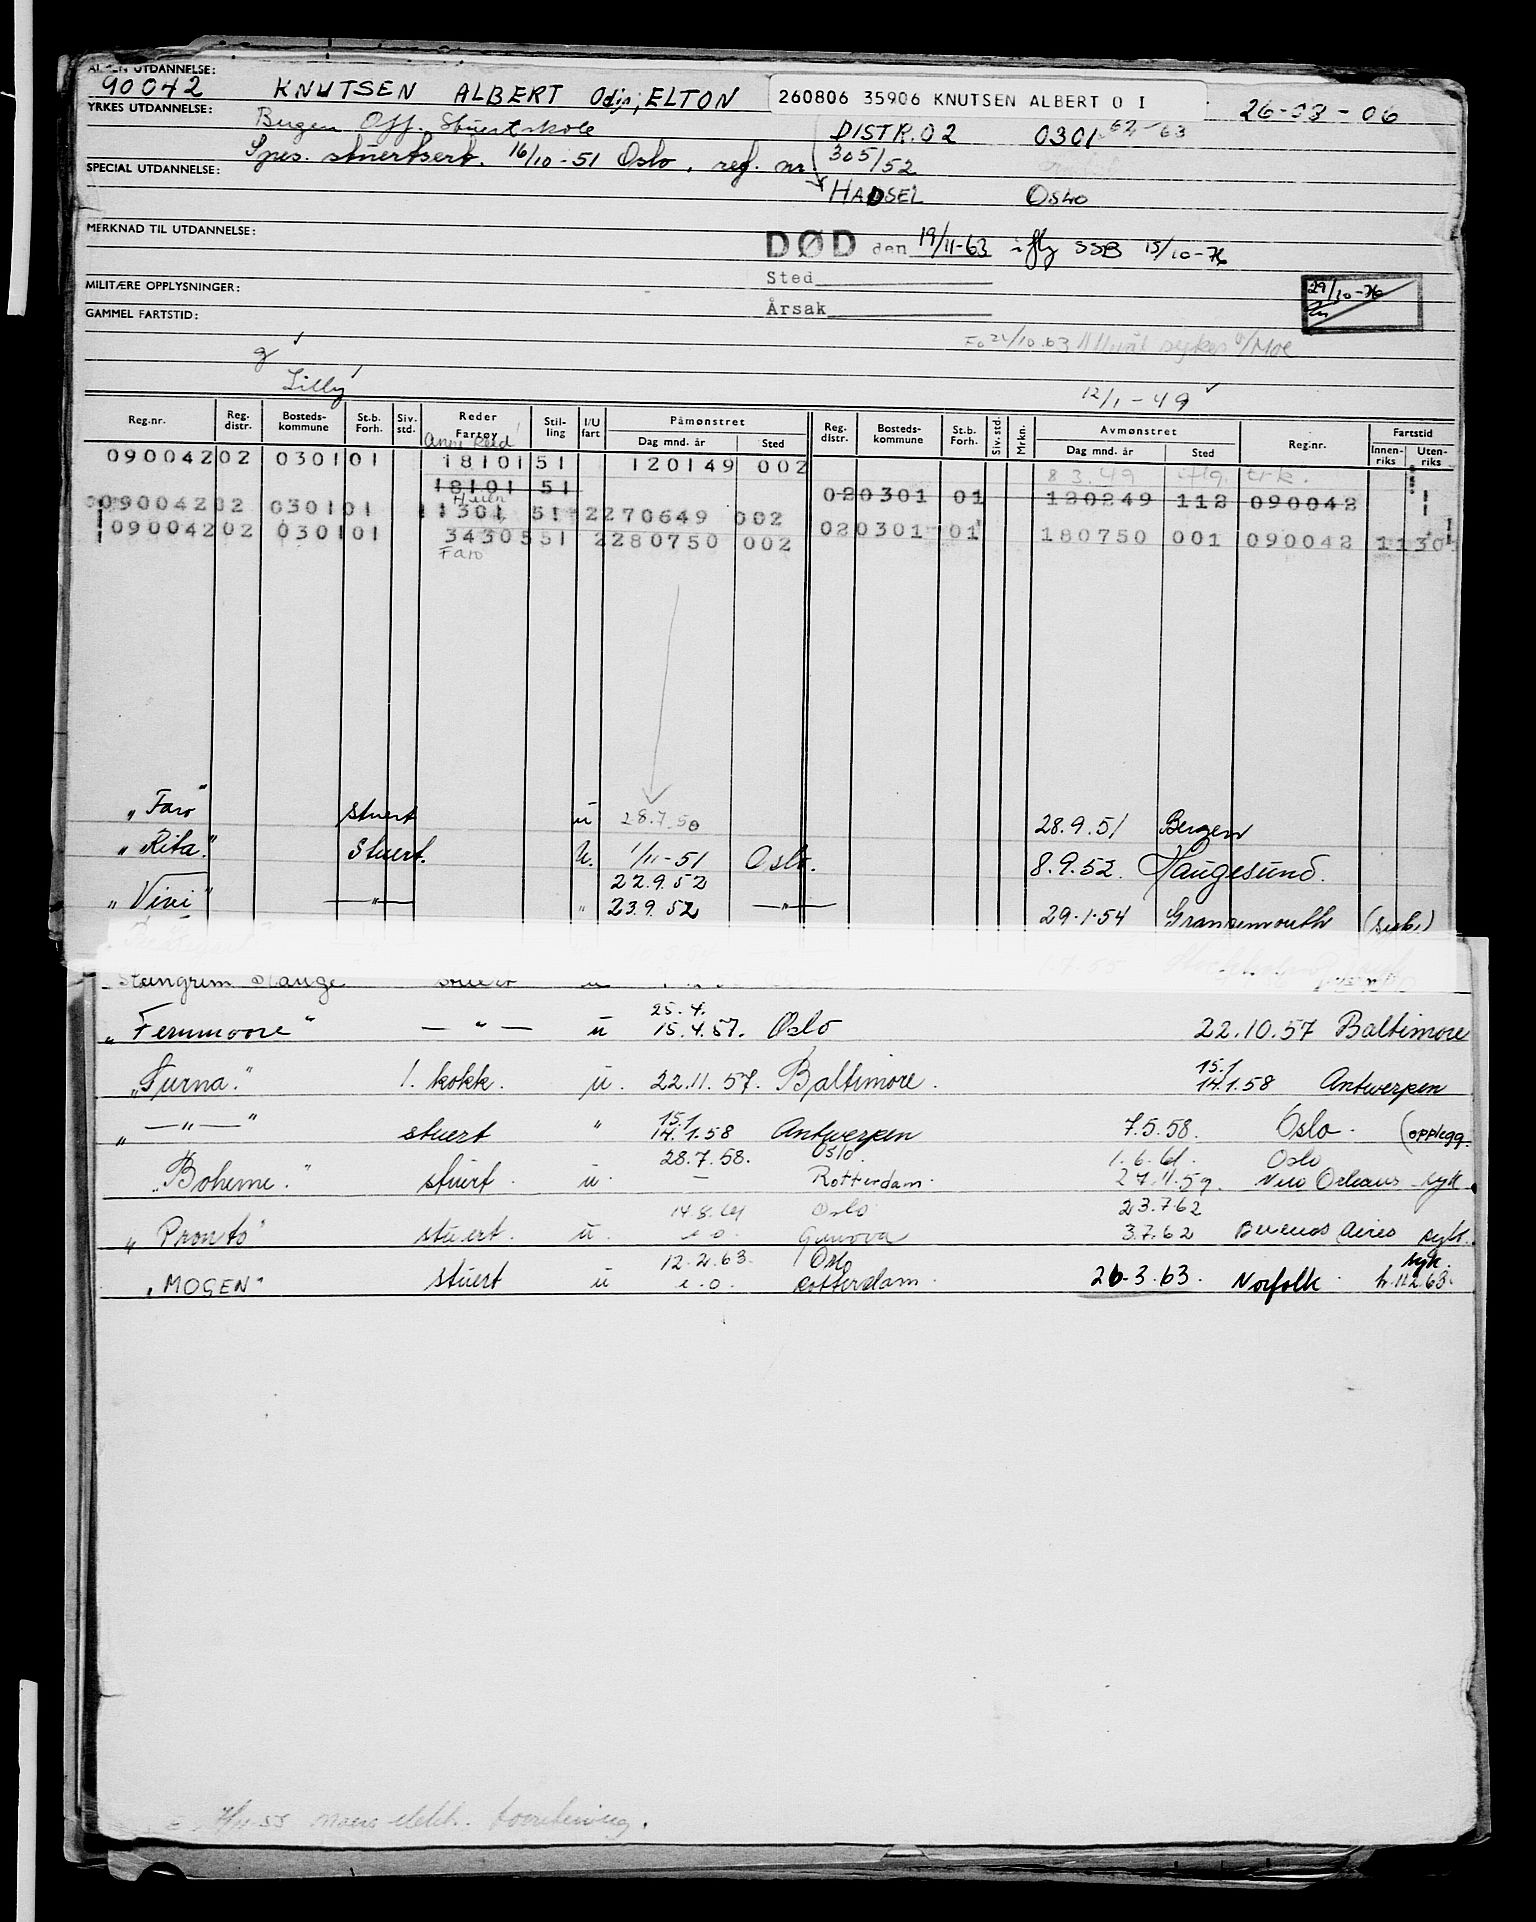 UTDANNELSE:
90042 KNUTSEN ALBERT Odin, ELTON 260806 35906 KNUTSEN ALBERT O I 26-08-06
YRKES UTDANNELSE: Bergen Off. Stuertskole DISTR. 02 0301 62-63
Spes. stuertsert. 16/10-51 Oslo, reg. nr. 305/52
SPECIAL UTDANNELSE:
HADSEL Oslo
MERKNAD TIL UTDANNELSE:
DØD den 19/11-63 iflg SSB 15/10-76
Sted
MILITÆRE OPPLYSNINGER: 29/10-76
Årsak
GAMMEL FARTSTID:
sykes
Lilly 12/1-49
Reg.nr. Reg. distr. Bosteds-kommune St.b. Forh. Siv. std. Reder Fartøy Stil-ling I/U fart Påmønstret Dag mnd. år Sted Reg. distr. Bosteds-kommune St.b. Forh. Siv. std. Mrkn. Avmønstret Dag mnd. år Sted Reg.nr. Fartstid Innen-riks Uten-riks
090042 02 0301 01 18101 51 120149 002 8 3.49
18101 51 020301 01 120249 112 090042
090042 02 0301 01 11301 51 2 270649 002
090042 02 0301 01 34305 51 2 280750 002 020301 01 180750 001 090042 1130
Faro
"Faro" stuert u 28.7.50 28.9.51 Bergen
"Rita" Stuert. U. 1/11-51 Oslo. 8.9.52. Haugesund.
22.9.52
"Vivi" — " — " 23.9.52 — " — 29.1.54 Grangemouth
Steingrim Hauge stuert u
25.4.
"Fernmoore" — " — u 15.4.57. Oslo 22.10.57 Baltimore
15.1
"Turna." 1. kokk. u. 22.11.57. Baltimore. 14.1.58 Antwerpen
15.1
" — " — " stuert " 14.1.58 Antwerpen 7.5.58. Oslo. (opplegg.
28.7.58. Oslo 1.6.61. Oslo
"Boheme." stuert. u. — Rotterdam. 27.11.59. New Orleans syk.
14.8.61 Oslo 23.7.62
"Pronto" stuert. u. e.o. Genova 3.7.62 Buenos Aires syk.
12.2.63. Oslo syk.
"MOGEN" stuert u e.o. Rotterdam. 26.3.63. Norfolk.